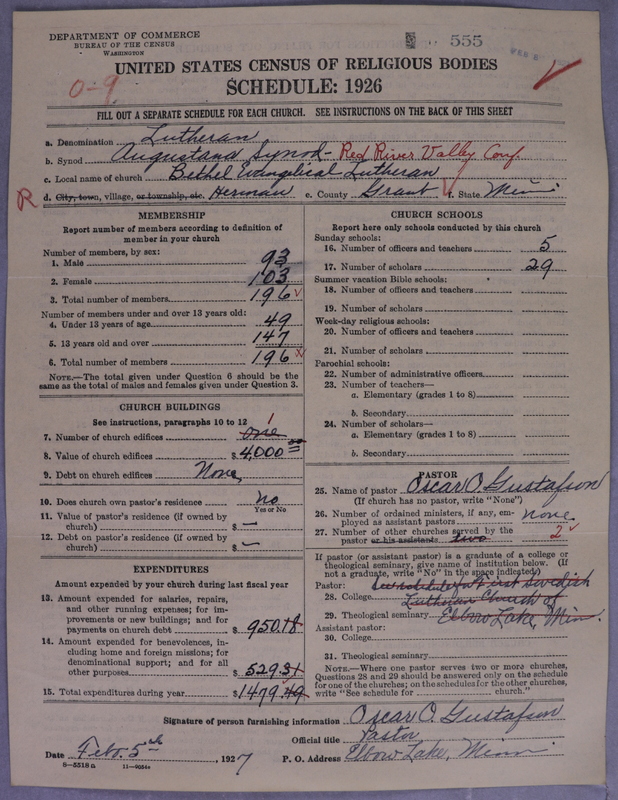 DEPARTMENT OF COMMERCE
BUREAU OF THE CENSUS
WASHINGTON
555
UNITED STATES CENSUS OF RELIGIOUS BODIES
0-9
SCHEDULE: 1926
FILL OUT A SEPARATE SCHEDULE FOR EACH CHURCH. SEE INSTRUCTIONS ON THE BACK OF THIS SHEET
a. Denomination Lutheran
b. Synod Augustana Synod - Red River Valley Conf.
c. Local name of church Bethel Evangelical Lutheran
R d. City, town, village, or township, etc. Herman e. County Grant f. State Minn
MEMBERSHIP
Report number of members according to definition of
member in your church
Number of members, by sex:
1. Male 93
2. Female 103
3. Total number of members 196
Number of members under and over 13 years old:
4. Under 13 years of age 49
5. 13 years old and over 147
6. Total number of members 196
NOTE.—The total given under Question 6 should be
the same as total of males and females given under Question 3.
CHURCH BUILDINGS
See instructions, paragraphs 10 to 12
7. Number of church edifices one 1
8. Value of church edifices $ 4,000
9. Debt on church edifices None
10. Does church own pastor's residence No
Yes or No
11. Value of pastor's residence (if owned by
church) $ —
12. Debt on pastor's residence (if owned by
church) $ —
EXPENDITURES
Amount expended by your church during last fiscal year
13. Amount expended for salaries, repairs,
and other running expenses; for im-
provements or new buildings; and for
payments on church debt $ 950.18
14. Amount expended for benevolences, in-
cluding home and foreign missions; for
denominational support; and for all
other purposes $ 529.31
15. Total expenditures during year $ 1479.49
CHURCH SCHOOLS
Report here only schools conducted by this church
Sunday schools:
16. Number of officers and teachers 5
17. Number of scholars 29
Summer vacation Bible schools:
18. Number of officers and teachers
19. Number of scholars
Week-day religious schools:
20. Number of officers and teachers
21. Number of scholars
Parochial schools:
22. Number of administrative officers
23. Number of teachers—
a. Elementary (grades 1 to 8)
b. Secondary
24. Number of scholars—
a. Elementary (grades 1 to 8)
b. Secondary
PASTOR
25. Name of pastor Oscar O. Gustafson
(If church has no pastor, write "None")
26. Number of ordained ministers, if any, em-
ployed as assistant pastors none
27. Number of other churches served by the
pastor or his assistants two 2
If pastor (or assistant pastor) is a graduate of a college or
theological seminary, give name of institution below. (If
not a graduate, write "No" in the space indicated)
Pastor: See schedule for First Swedish
28. College Lutheran Church of
29. Theological seminary Elbow Lake, Minn.
Assistant pastor:
30. College
31. Theological seminary
NOTE.—Where one pastor serves two or more churches,
Questions 28 and 29 should be answered only on the schedule
for one of the churches; on the schedules for the other churches,
write "See schedule for church."
Signature of person furnishing information Oscar O. Gustafson
Official title Pastor
Date Feb. 5th, 1927 P. O. Address Elbow Lake, Minn
8—5518a 11—9056a